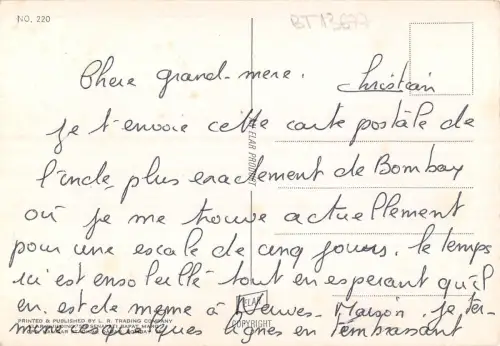 NO. 220
BT 13677
Chere grand-mere.
Christian
je t'envoie cette carte postale de
l'inde, plus exactement de Bombay
où je me trouve actuellement
pour une escale de cinq jours. le temps
ici est ensoleillé tout en esperant qu'il
en est de même à Neuves-Maison. je ter-
mine ces quelques lignes en t'embrassant
ELAR PRODUCT
ELAR
COPYRIGHT
PRINTED & PUBLISHED BY L. R. TRADING COMPANY